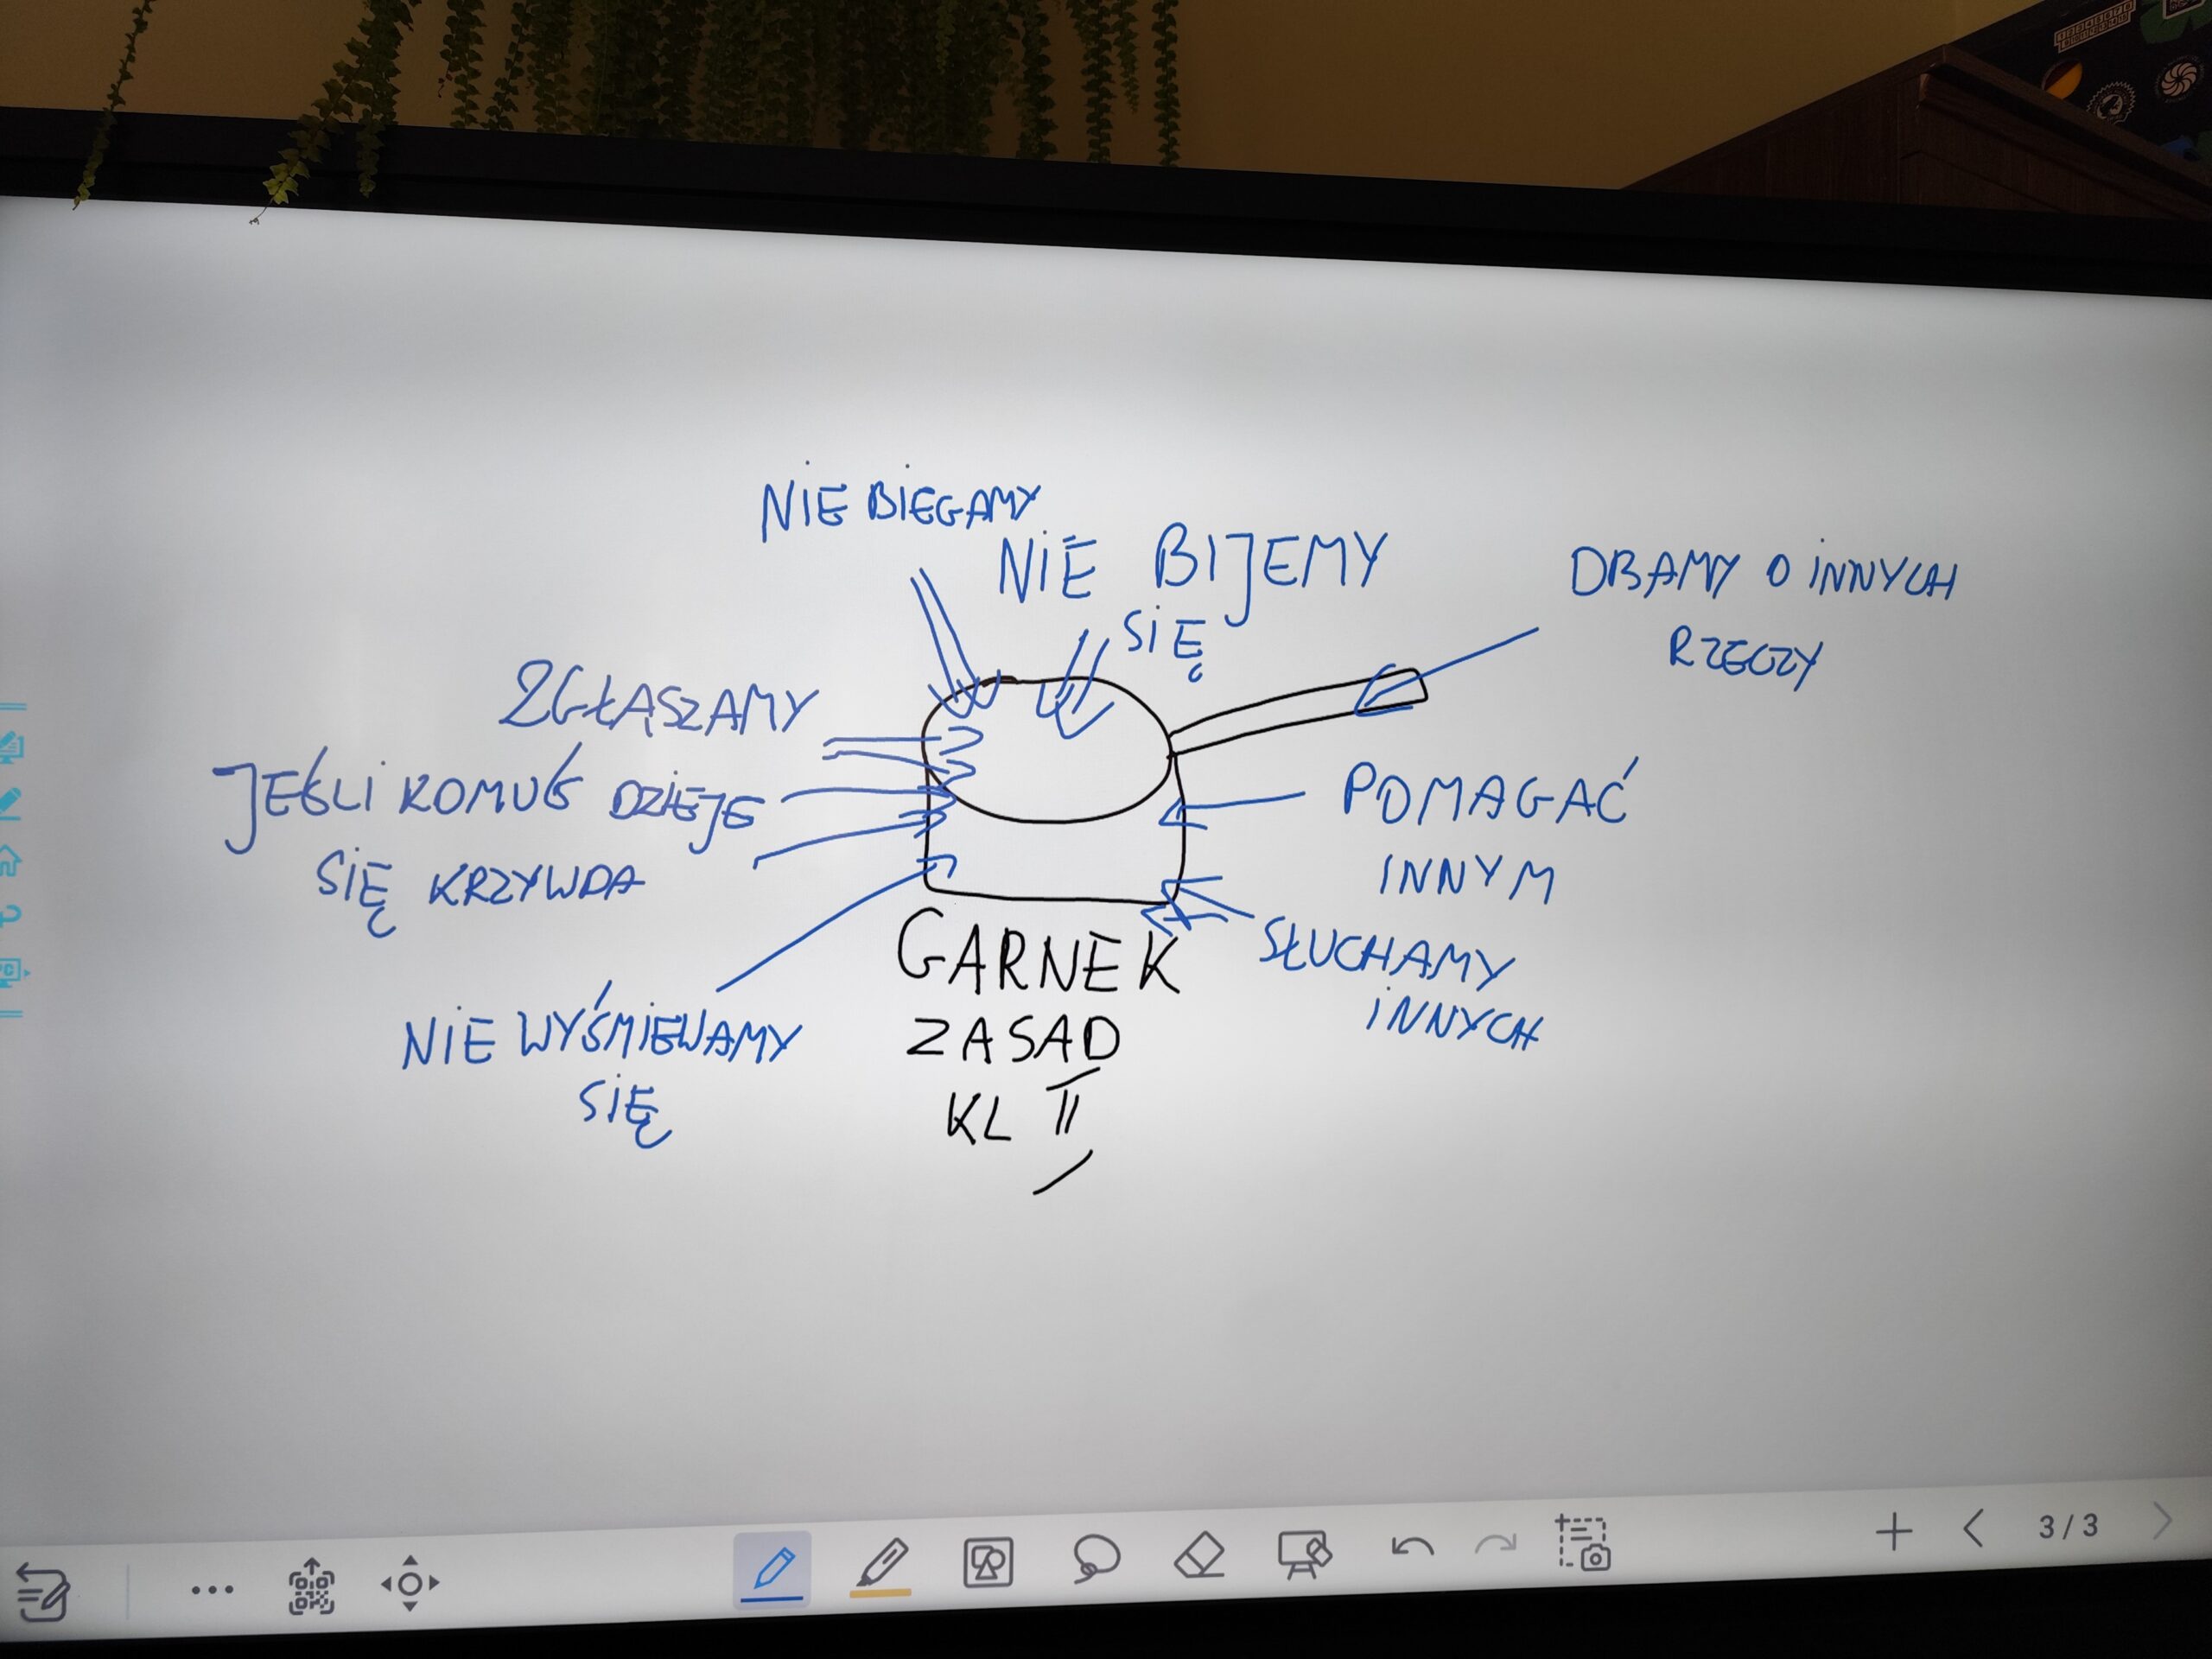 NIE BIEGAMY
NIE BIJEMY
SIĘ
DBAMY O INNYCH
RZECZY
ZGŁĄSZAMY
JEŚLI KOMUŚ DZIEJE
SIĘ KRZYWDA
POMAGAĆ
INNYM
SŁUCHAMY
INNYCH
NIE WYŚMIEWAMY
SIĘ
GARNEK
ZASAD
KL II
3/3